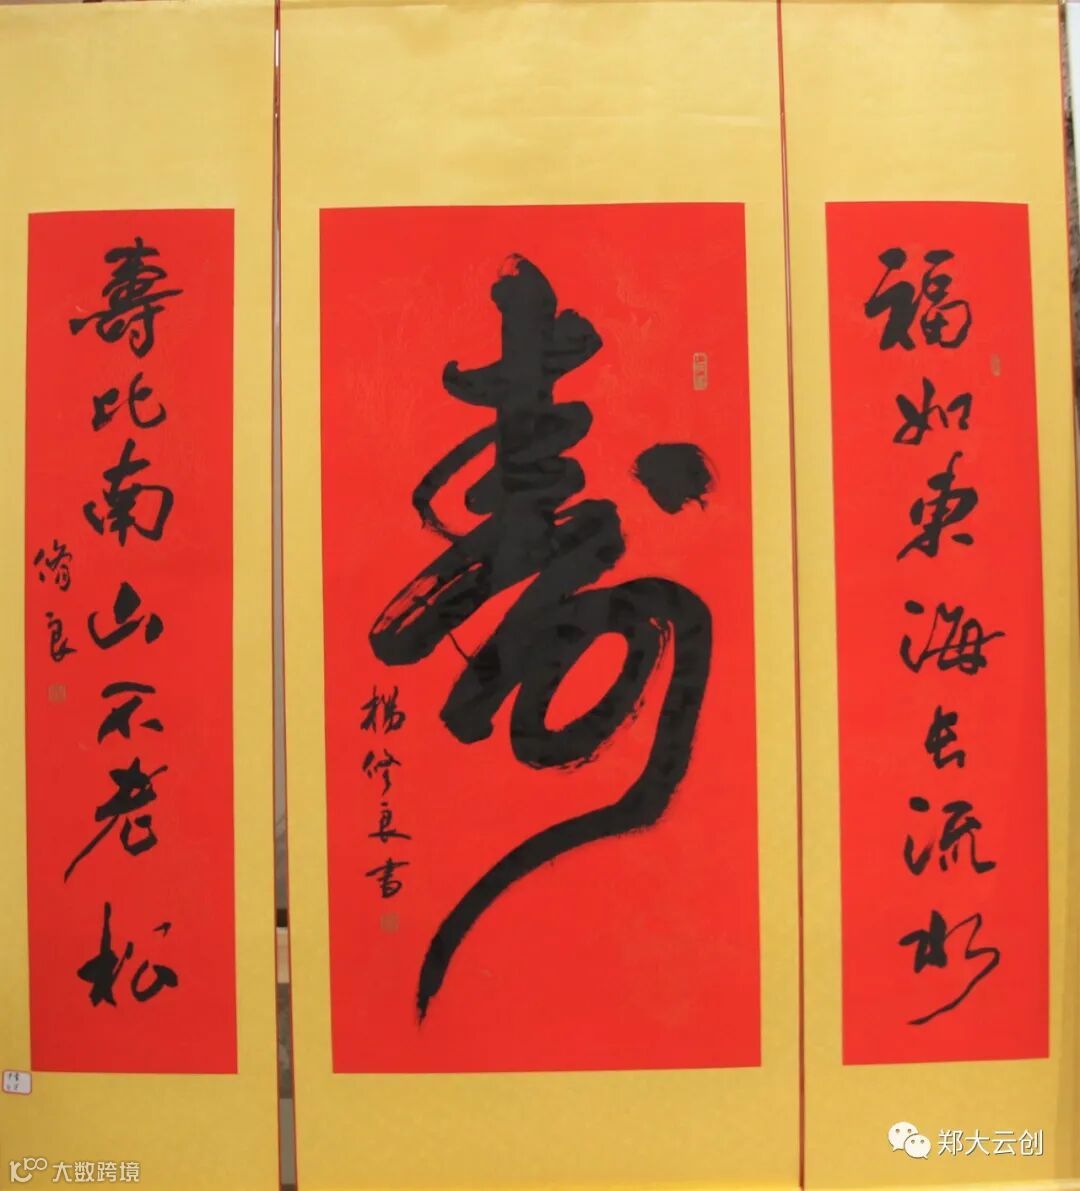 福如東海长流水
壽
楊修良书
壽比南山不老松
脩良
郑大云创
大数跨境